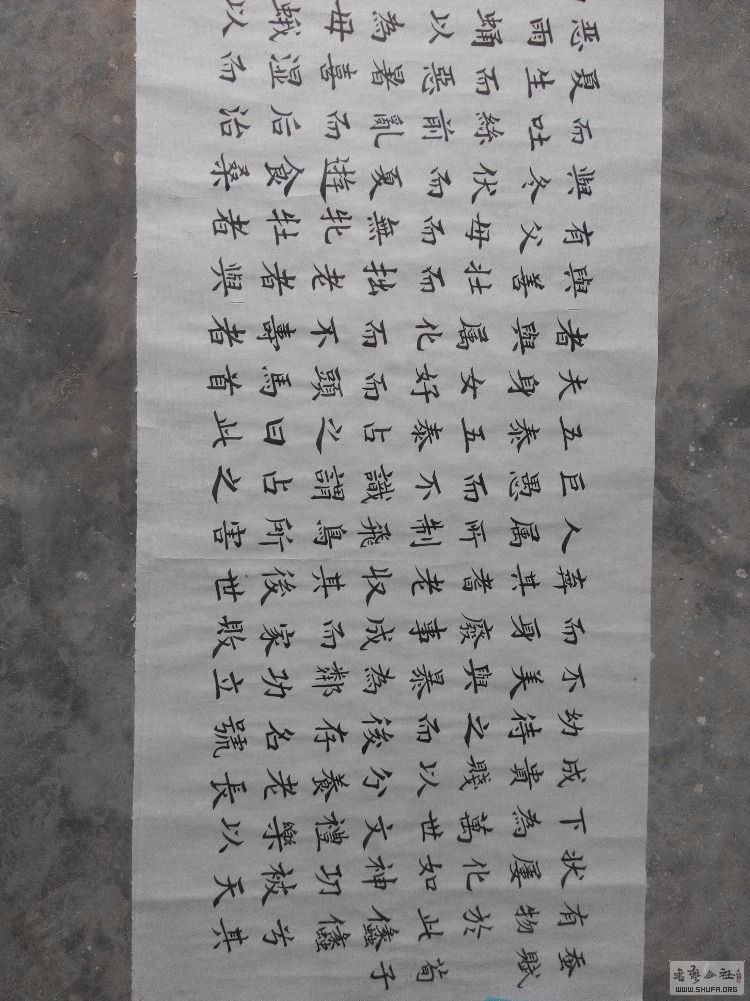 蚕賦 荀子
有物於此儵儵兮其
状屡化如神功被天
下為萬世文禮樂以
成貴賤以分養老長
幼待之而後存名號
不美與暴為鄰功立
而身廢事成而家敗
棄其耆老收其後世
人属所制飛鳥所害
臣愚而不識謂占之
五泰五泰占之曰此
夫身女好而頭馬首
者與属化而不壽者
與善壮而拙老者與
有父母而無牝牡者
與冬伏而夏遊食桑
而吐絲前亂而后治
夏生而惡暑喜湿而
恶雨蛹以為母蛾以
WWW.SHUFA.ORG